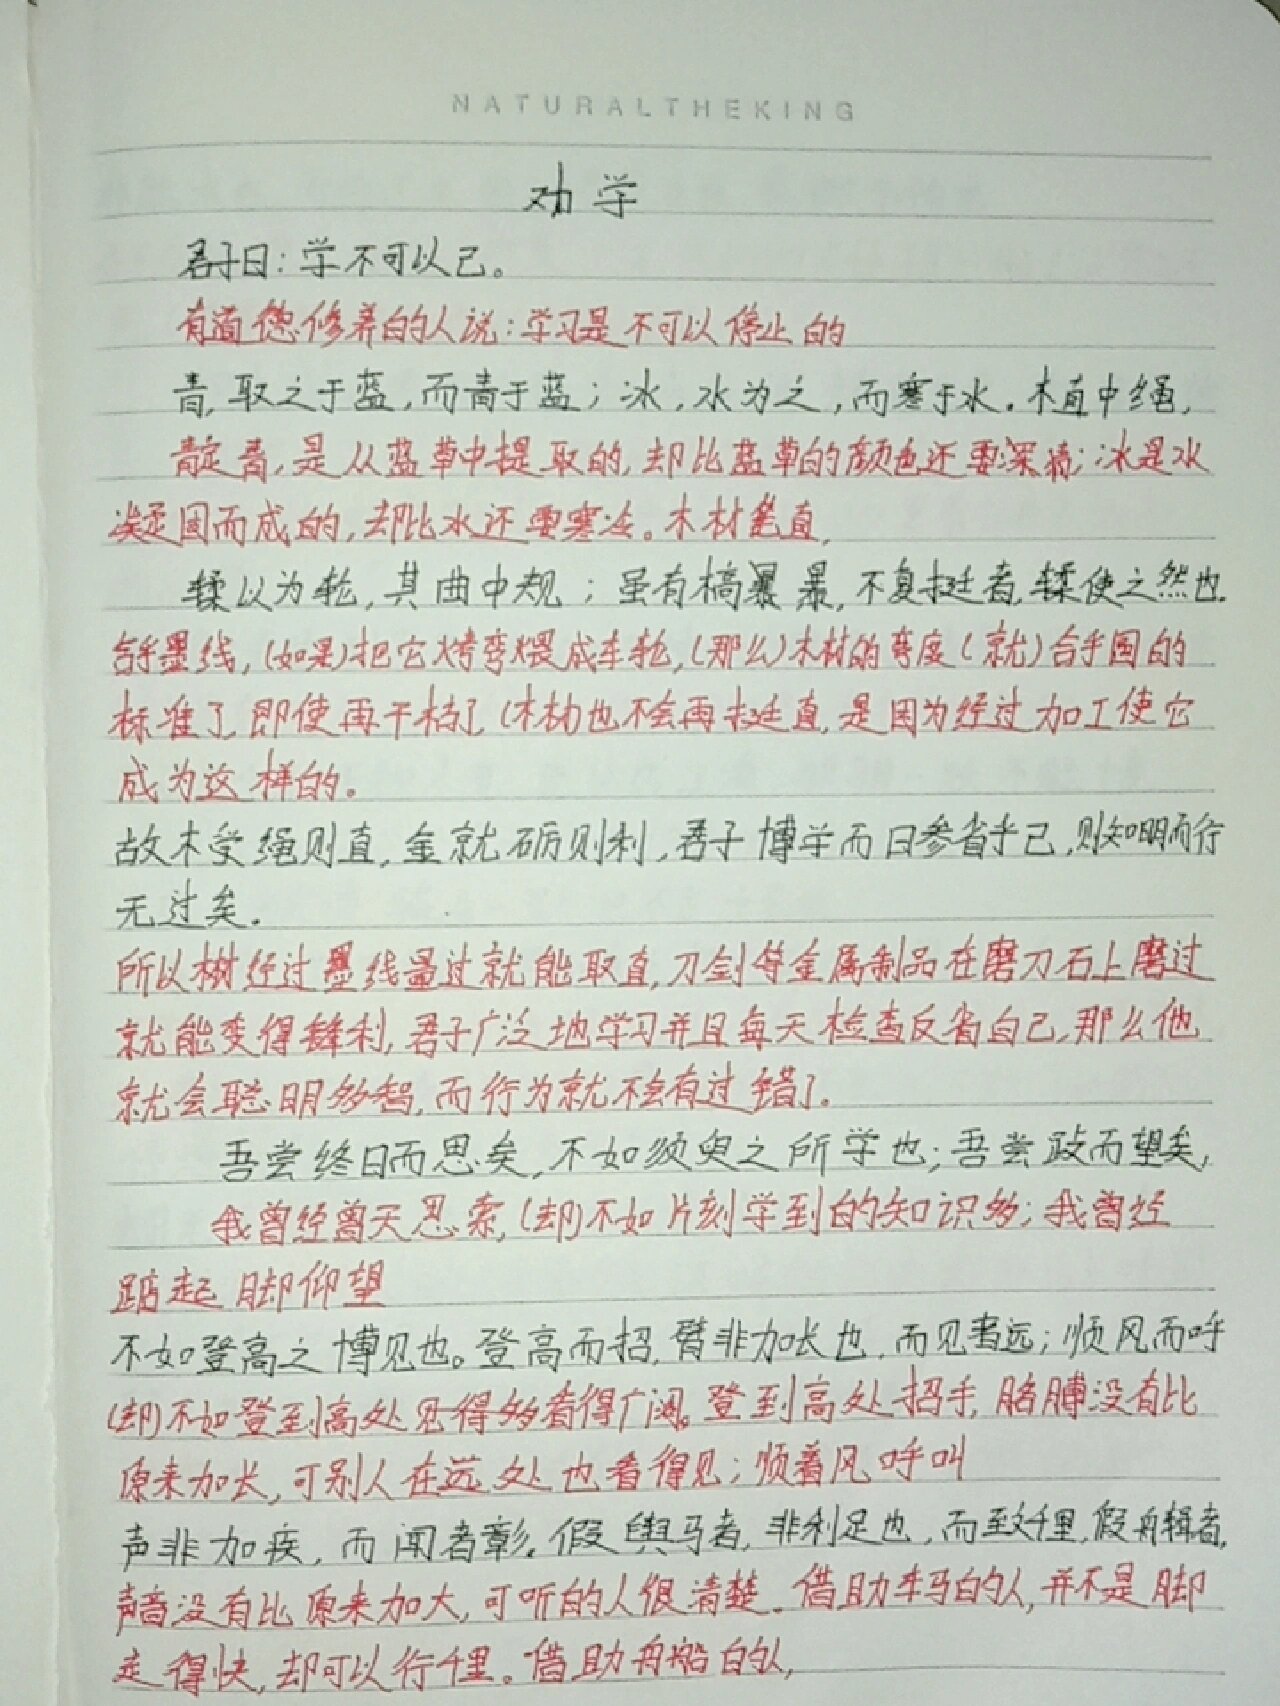 NATURALTHEKING
劝学
君子曰：学不可以己。
有道德修养的人说：学习是不可以停止的
青，取之于蓝，而青于蓝；冰，水为之，而寒于水。木直中绳，
靛青，是从蓝草中提取的，却比蓝草的颜色还要深；冰是水
凝固而成的，却比水还要寒冷。木材笔直，
𫐓以为轮，其曲中规；虽有槁暴，不复挺者，𫐓使之然也。
合乎墨线，（如果）把它烤弯煨成车轮，（那么）木材的弯度（就）合乎圆的
标准了，即使再干枯了（木材）也不会再挺直，是因为经过加工使它
成为这样的。
故木受绳则直，金就砺则利，君子博学而日参省乎己，则知明而行
无过矣。
所以树经过墨线量过就能取直，刀剑等金属制品在磨刀石上磨过
就能变得锋利，君子广泛地学习并且每天检查反省自己，那么他
就会聪明多智，而行为就不会有过错了。
吾尝终日而思矣，不如须臾之所学也；吾尝跂而望矣，
我曾经整天思索，（却）不如片刻学到的知识多；我曾经
踮起脚仰望
不如登高之博见也。登高而招，臂非加长也，而见者远；顺风而呼
（却）不如登到高处见得多看得广阔。登到高处招手，胳膊没有比
原来加长，可别人在远处也看得见；顺着风呼叫
声非加疾，而闻者彰。假舆马者，非利足也，而致千里，假舟楫者，
声音没有比原来加大，可听的人很清楚。借助车马的人，并不是脚
走得快，却可以行千里。借助舟船的人，